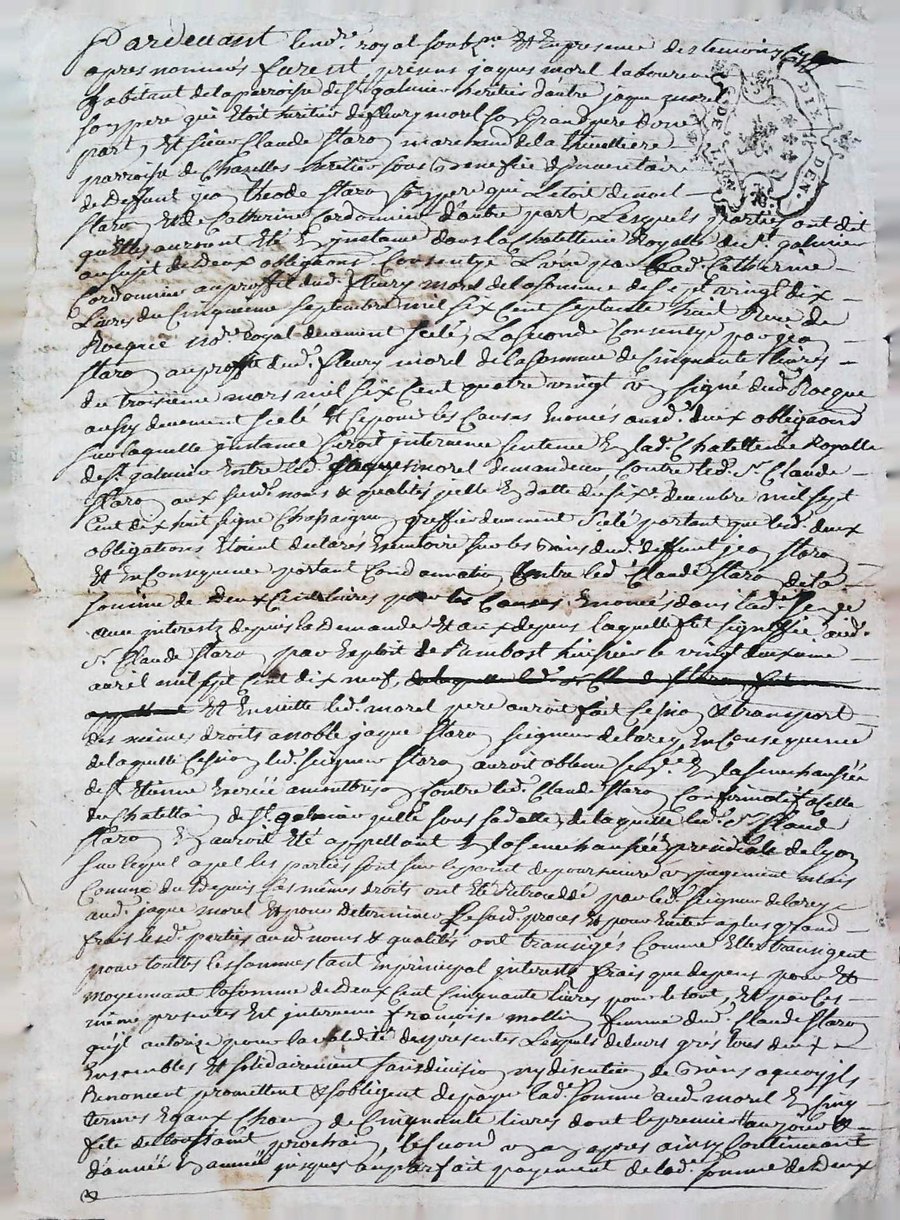 Pardevant le no.re royal soubz.ne Et En presence des temoins
apres nommés furent presens jaques morel laboureur
habitant de la perroise de s.t galmier heritier d'autre jaque morel
son pere qui Etoit heritier de fleury morel son Grand pere d'une
part, Et sieur Claude Staro marchand de la thuilliere
parroise de Chazelles heritier sous Benefice d'jnventaire
de deffunt jea theode Staro son pere qui L'etoit de
Staro Et de Catherine Cordonnier d'autre part Lesquels parties ont dit
quelles auroient Eté En jnstance dans la Chatellenie Royalle de s.t galmier
au sujet de deux obligaons Consenties L'une par lad. Catherine
Cordonnier au proffit dud. fleury morel de la somme de sept vingt dix
Livres du Cinquieme Septembre mil six Cent septante huit Recue de
Rocque no.re royal deuement scelé, La seconde Consentye par jea
Staro au proffit dud. fleury morel de la somme de Cinquante Livres
du troisieme mars mil six Cent quatre vingt signé dud. Rocque
aussy deuement scelé Et pour les Causes Enoncés ausd. deux obligaons
sur laquelle jnstance seroit jntervenue sentence En lad. Chatellenie Royalle
de s.t galmier Entre led. jaques morel demandeur Contre led. s.r Claude
Staro aux susd. noms & qualités jcelle En datte du six.e decembre mil sept
Cent dix huit signé Chassaigne greffier deuement scelé portant que led. deux
obligations Etoient declarés Executoire sur les Biens dud. deffunt jea Staro
Et En Consequence portant Condamnation Contre led. Claude Staro de la
somme de deux Cent livres pour les Causes Enoncés dans lad. sen.ce
aux jnterests depuis la demande Et aux depens laquelle fut signiffié aud.
s.r Claude Staro par Exploit de Rambost huissier le vingt deuxieme
avril mil sept Cent dix neuf,
Et Ensuitte led. morel pere auroit fait Cession & transport
des mêmes droits a noble jaque Staro seigneur de larey, En Consequence
de laquelle Cession led. seigneur Staro auroit obtenu sen.ce En la senechaussée
de s.t Etienne Exercée a montbrison Contre led. Claude Staro Confirmatif a celle
du Chatellain de s.t galmier qu'elle sous sa datte, de laquelle led. s.r Claude
Staro En auroit Eté appellant En la senechaussée presidiale de Lyon
sur lequel apel les parties sont sur le point de poursuivre payement mais
Comme du depuis les mêmes droits ont Eté Retroceddé par led. seigneur de larey
aud. jaque morel Et pour determiner le susd. proces Et pour Eviter a plus grand
frais lesd. parties ausd. noms & qualités ont transigés Comme Elles transigent
pour touttes les sommes tant En principal jnterests frais que depens pour Et
moyennant la somme de deux Cent Cinquante livres pour le tout, Et par Ces
même presentes Est jntervenue françoise mollin femme dud. Claude Staro
qu'jl autorise pour la validité des presentes Lesquels de leurs grés tous deux
Ensembles Et solidairement sans division ny discution de Biens a quoy jls
Renoncent promettent & s'obligent de payer lad. somme aud. morel En Cinq
termes Egaux Chacun de Cinquante livres dont le premier au jour &
fête de toussaint prochain le second un an apres ainsy Continuant
d'année En année jusques au parfait payement de lad. somme de deux